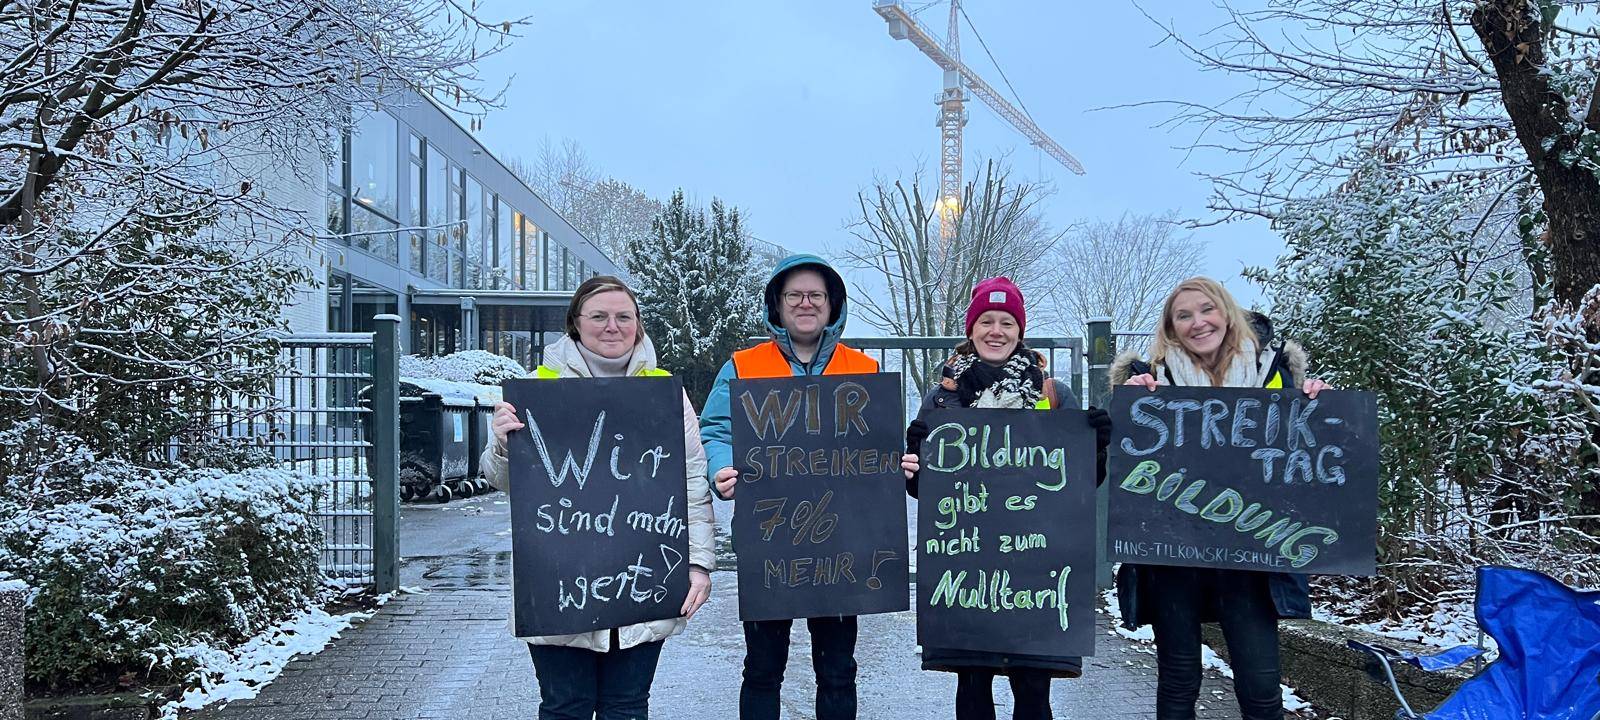 Wir
sind mehr
wert!
WIR
STREIKEN
7%
MEHR!
Bildung
gibt es
nicht zum
Nulltarif
STREIK-
TAG
BILDUNG
HANS-TILKOWSKI-SCHULE